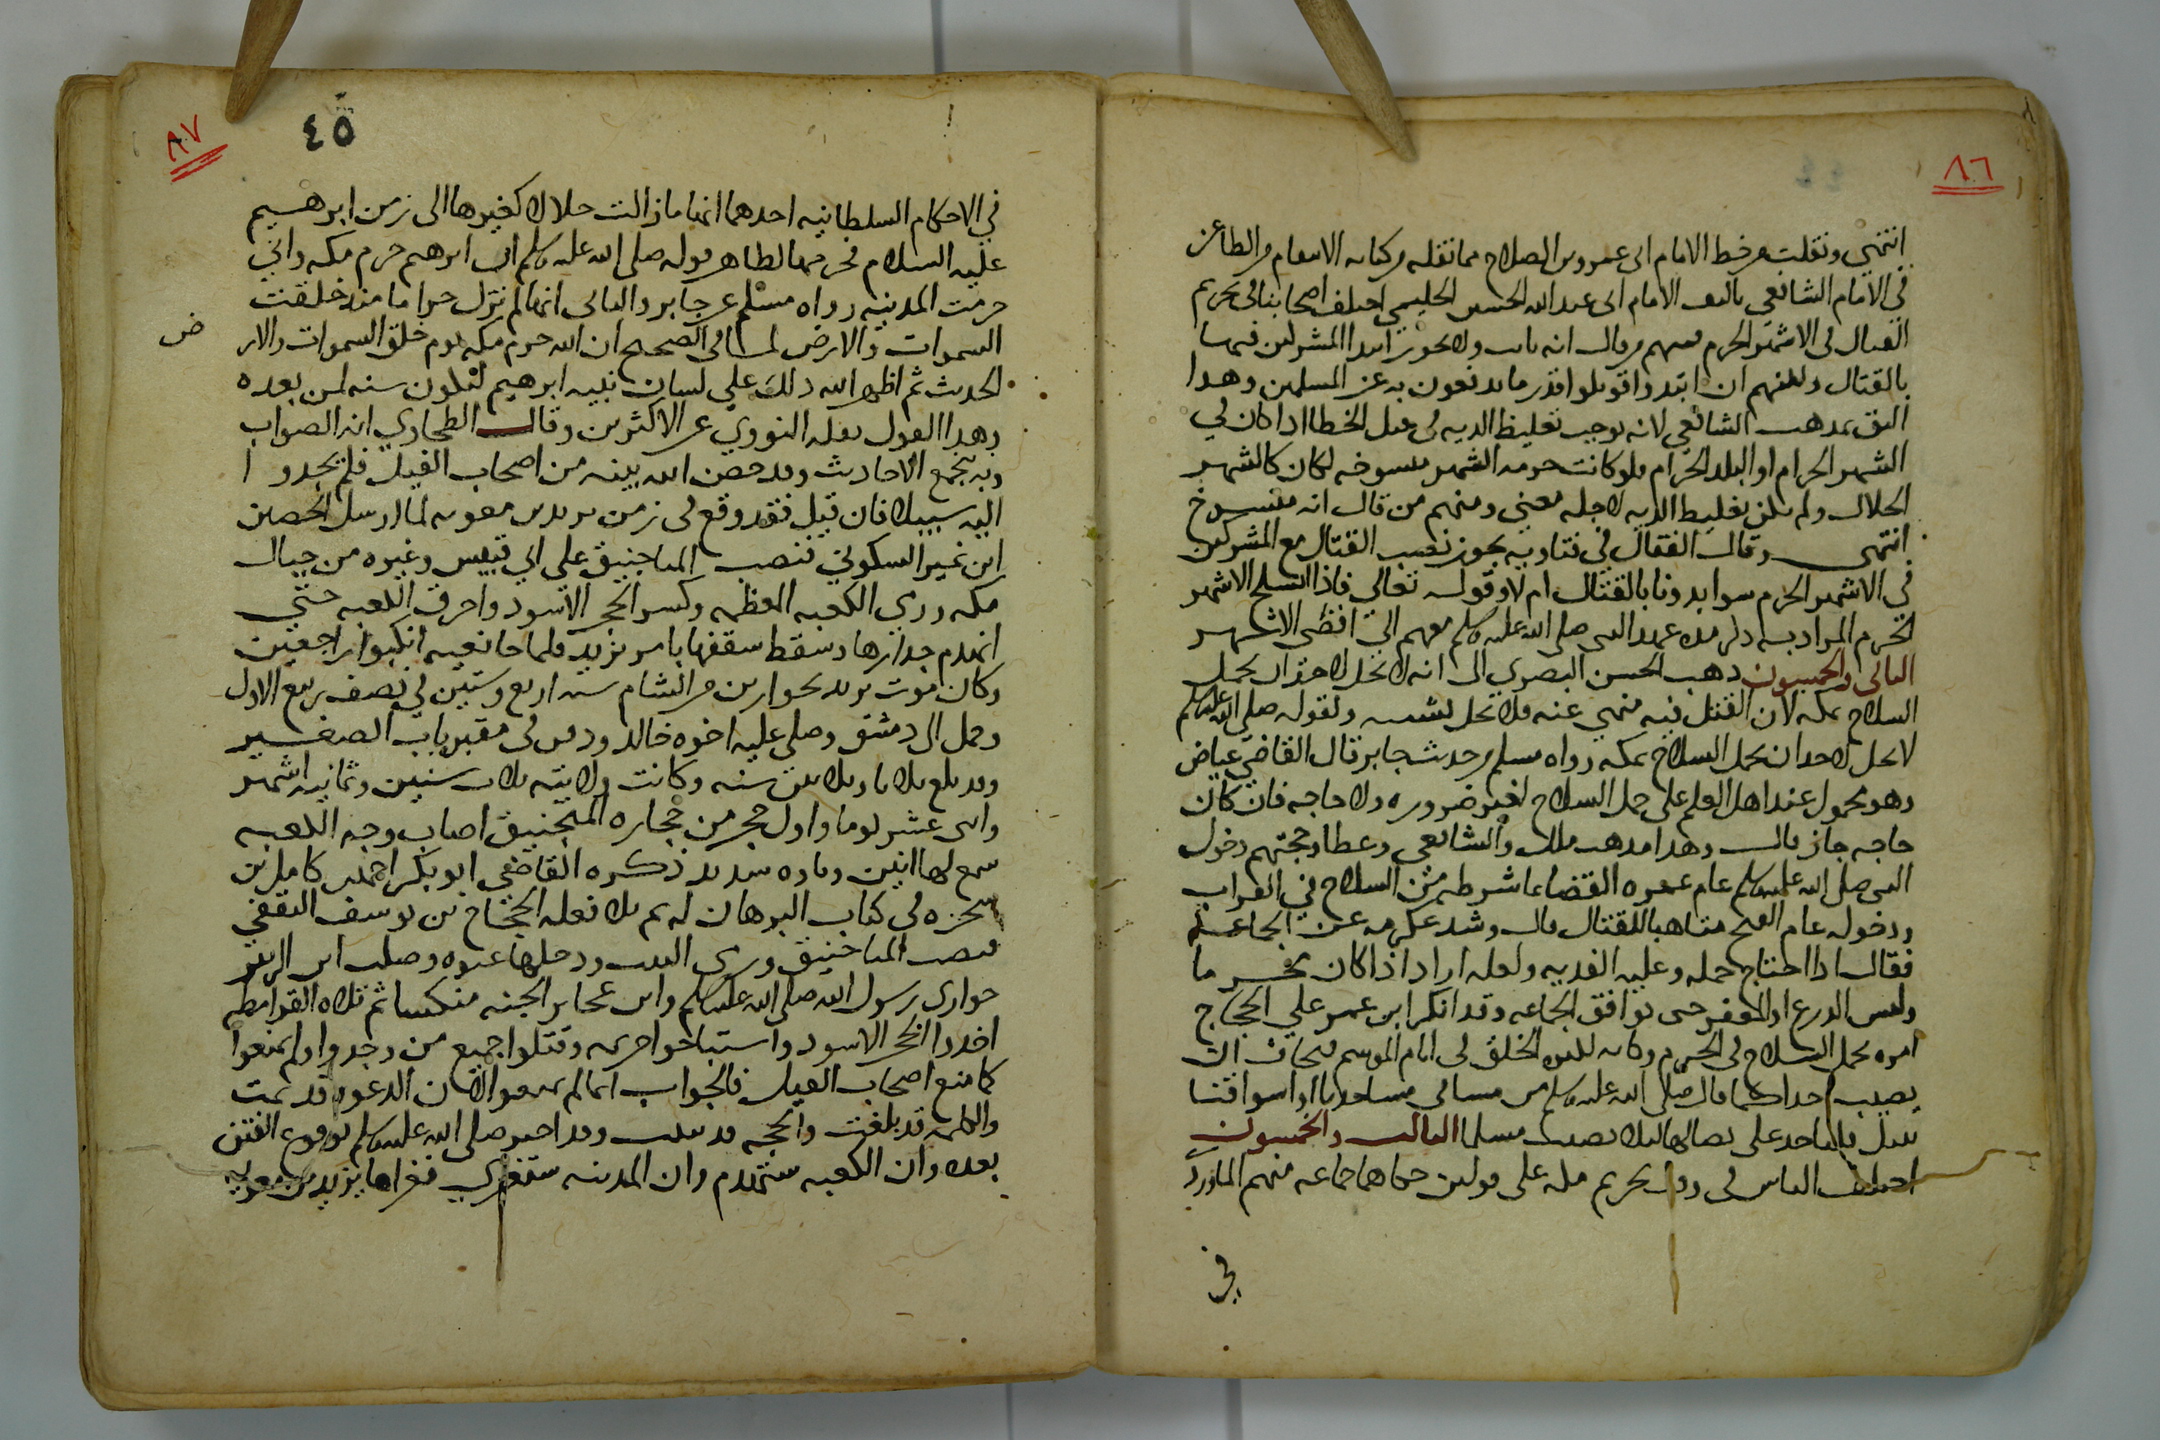 ٨٦
انتهي ونقلت من خط الامام ابى عمرو بن الصلاح مما نقله من كتاب الانتقام من الطاعن
في الامام الشافعي تاليف الامام ابى عبد الله الحسين الحليمي اختلف اصحابنا في تحريم
القتال في الاشهر الحرم فمنهم من قال انه ثابت ولا يجوز ابتدا المشركين فيها
بالقتال ولكنهم ان ابتدوا قوتلوا قدر ما يدفعون به عن المسلمين وهذا
اليق بمذهب الشافعي لانه يوجب تغليظ الديه في قتل الخطا اذا كان في
الشهر الحرام او البلد الحرام فلو كانت حرمه الشهر منسوخه لكان كالشهر
الحلال ولم يكن تغليظ الديه لاجله معني ومنهم من قال انه منسوخ
انتهى وقال القفال في فتاويه يجوز نصب القتال مع المشركين
في الاشهر الحرم سوا بدونا بالقتال ام لا وقوله تعالي فاذا انسلخ الاشهر
الحرم المراد به ذكر مده عهد النبى صلى الله عليه وسلم معهم الي انقضى الاشهر
الثانى والخمسون ذهب الحسن البصري الى انه لا يحل لاحد ان يحمل
السلاح بمكه لان القتل فيه منهي عنه فلا يحل بسببه ولقوله صلى الله عليه وسلم
لا يحل لاحد ان يحمل السلاح بمكه رواه مسلم من حديث جابر قال القاضي عياض
وهو محمول عند اهل العلم على حمل السلاح لغير ضروره ولا حاجه فان كان
حاجه جاز قال وهذا مذهب ملك والشافعي وعطا وحجتهم دخول
النبى صلى الله عليه وسلم عام عمره القضا بما شرطه من السلاح في القراب
ودخوله عام الفتح متاهبا للقتال قال وشذ عكرمه عن الجماعه
فقال اذا احتاج حمله وعليه الفديه ولعله اراد اذا كان محرما
ولبس الدرع او المغفر حتى يوافق الجماعه وقد انكر ابن عمر علي الحجاج
امره بحمل السلاح في الحرم وكانه لكثره الخلق في ايام الموسم فيخاف ان
يصيب احدا كما قال صلى الله عليه وسلم من مشى في مساجدنا او اسواقنا
بنبل فلياخد على نصالها ليلا يصيب مسلما الثالث والخمسون
اختلف الناس في وقت تحريم مكه على قولين حكاهما جماعه منهم الماوردي
في
٨٧
٤٥
في الاحكام السلطانيه احدهما انها ما زالت حلالا كغيرها الى زمن ابرهيم
عليه السلام فحرمها لظاهر قوله صلى الله عليه وسلم ان ابرهيم حرم مكه واني
حرمت المدينه رواه مسلم عن جابر والثانى انها لم تزل حراما منذ خلقت
السموات والارض لما في الصحيح ان الله حرم مكه يوم خلق السموات والار
ض
الحديث ثم اظهر الله ذلك علي لسان نبيه ابرهيم لتكون سنه لمن بعده
وهذا القول نقله النووي عن الاكثرين وقال الطحاوي انه الصواب
وبه تجمع الاحاديث وقد حصن الله بيته من اصحاب الفيل فلم يجدوا
اليه سبيلا فان قيل فقد وقع فى زمن يزيد بن معويه لما ارسل الحصين
ابن نمير السكوني فنصب المناجنيق على ابي قبيس وغيره من جبال
مكه ورمى الكعبه المعظمه وكسر الحجر الاسود واحرق الكعبه حتي
انهدم جدارها وسقط سقفها بامر يزيد فلما جا نعيه انكبوا راجعين
وكان موت يزيد بحوارين من الشام سنه اربع وستين في نصف ربيع الاول
وحمل الى دمشق وصلى عليه اخوه خالد ودفن في مقبره باب الصغير
وقد بلغ ثلاثا وثلاثين سنه وكانت ولايته ثلاث سنين وثمانيه اشهر
واثنى عشر يوما واول حجر من حجاره المنجنيق اصاب وجه الكعبه
سمع لها انين شديد ذكره القاضي ابو بكر احمد بن كامل بن
شجره في كتاب البرهان له ثم تلا فعله الحجاج بن يوسف الثقفي
فنصب المناجنيق ورمى البيت ودخلها عنوه وصلب ابن الزبير
حوارى رسول الله صلى الله عليه وسلم وابن عجايز الجنه منكسا ثم تلاه القرامطه
اخذوا الحجر الاسود واستباحوا حرمه وقتلوا جميع من وجدوا ولم يمنعوا
كما منع اصحاب الفيل فالجواب انما لم يمنعوا لان الدعوه قد تمت
والكلمه قد بلغت والحجه قد ثبتت وقد اخبر صلى الله عليه وسلم بوقوع الفتن
بعده وان الكعبه ستهدم وان المدينه ستغزي فغزاها يزيد بن معويه